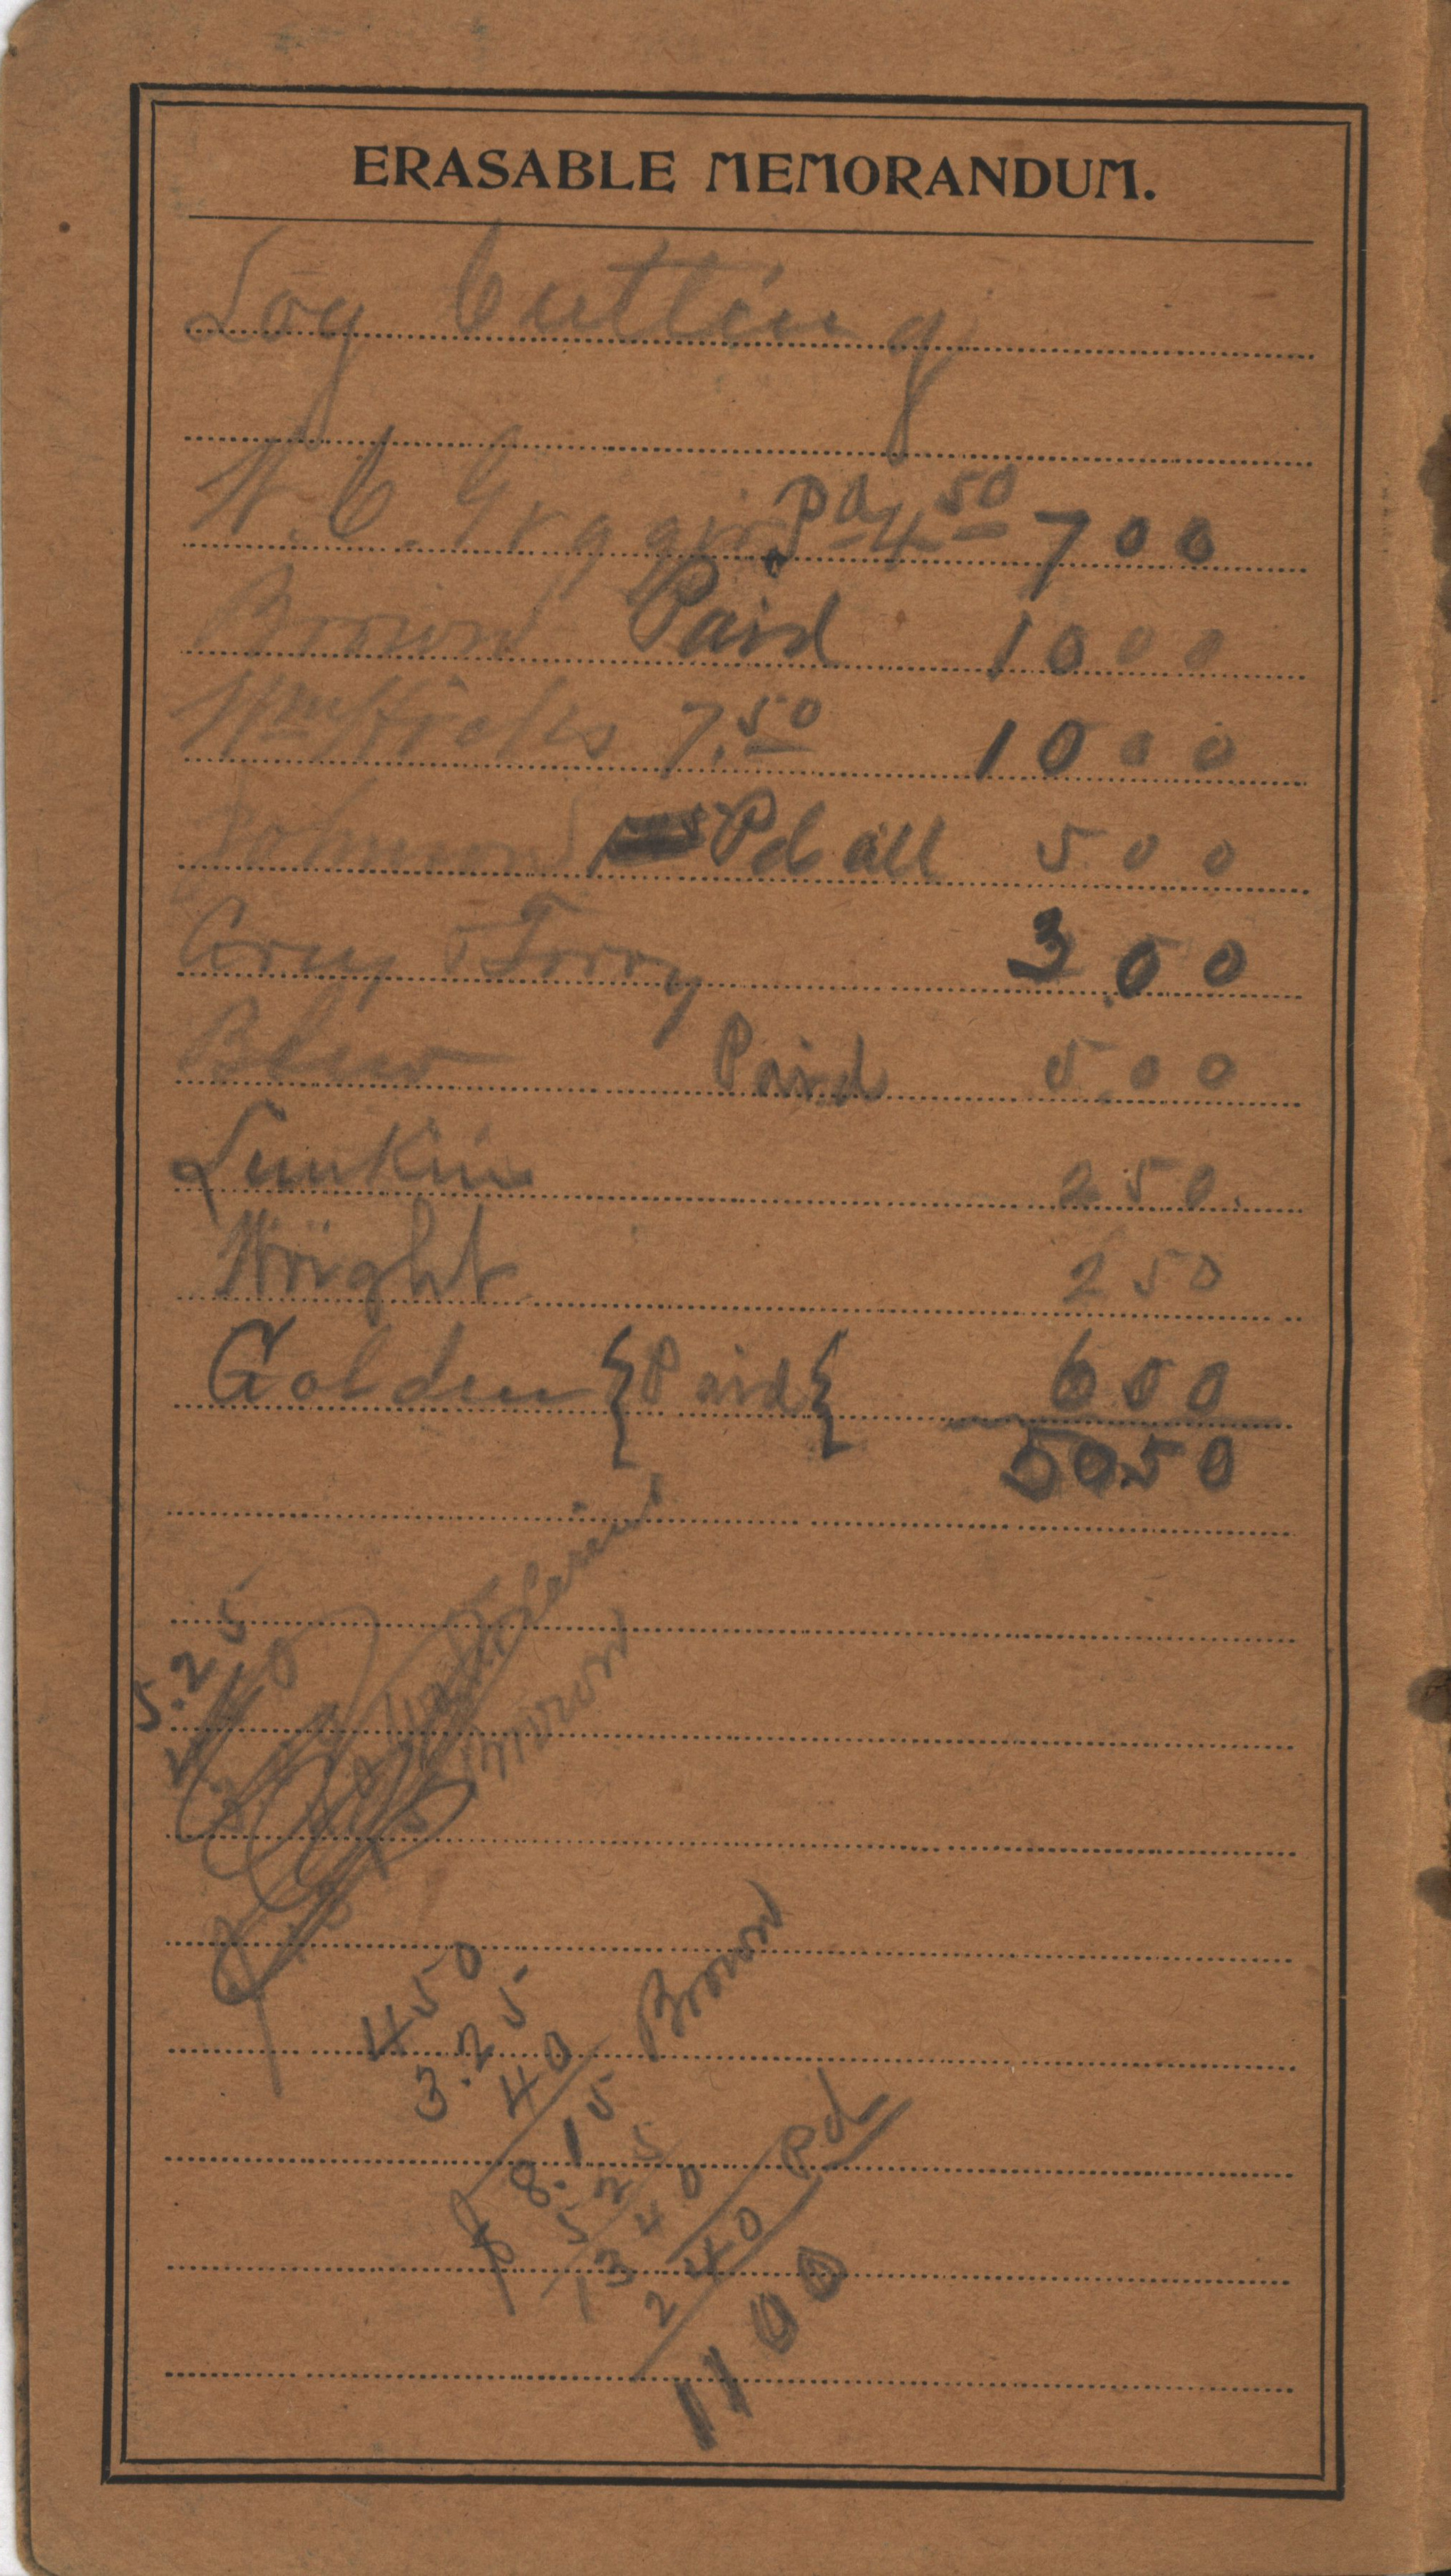 ERASABLE MEMORANDUM.
Log Cutting
W. C. Pd 4 50 7 00
Brown Paid 10 00
Wm Hicks 7.50 10 00
Johnson Pd all 5 00
3.00
Blew Paid 5.00
Lunkin 2 50.
Wright 2 50
Golden {Paid} 6 00
50.50
5.25
450
3.25
40 Brown
8.15
5 25
40
13 40 Pd
2 40
11 00